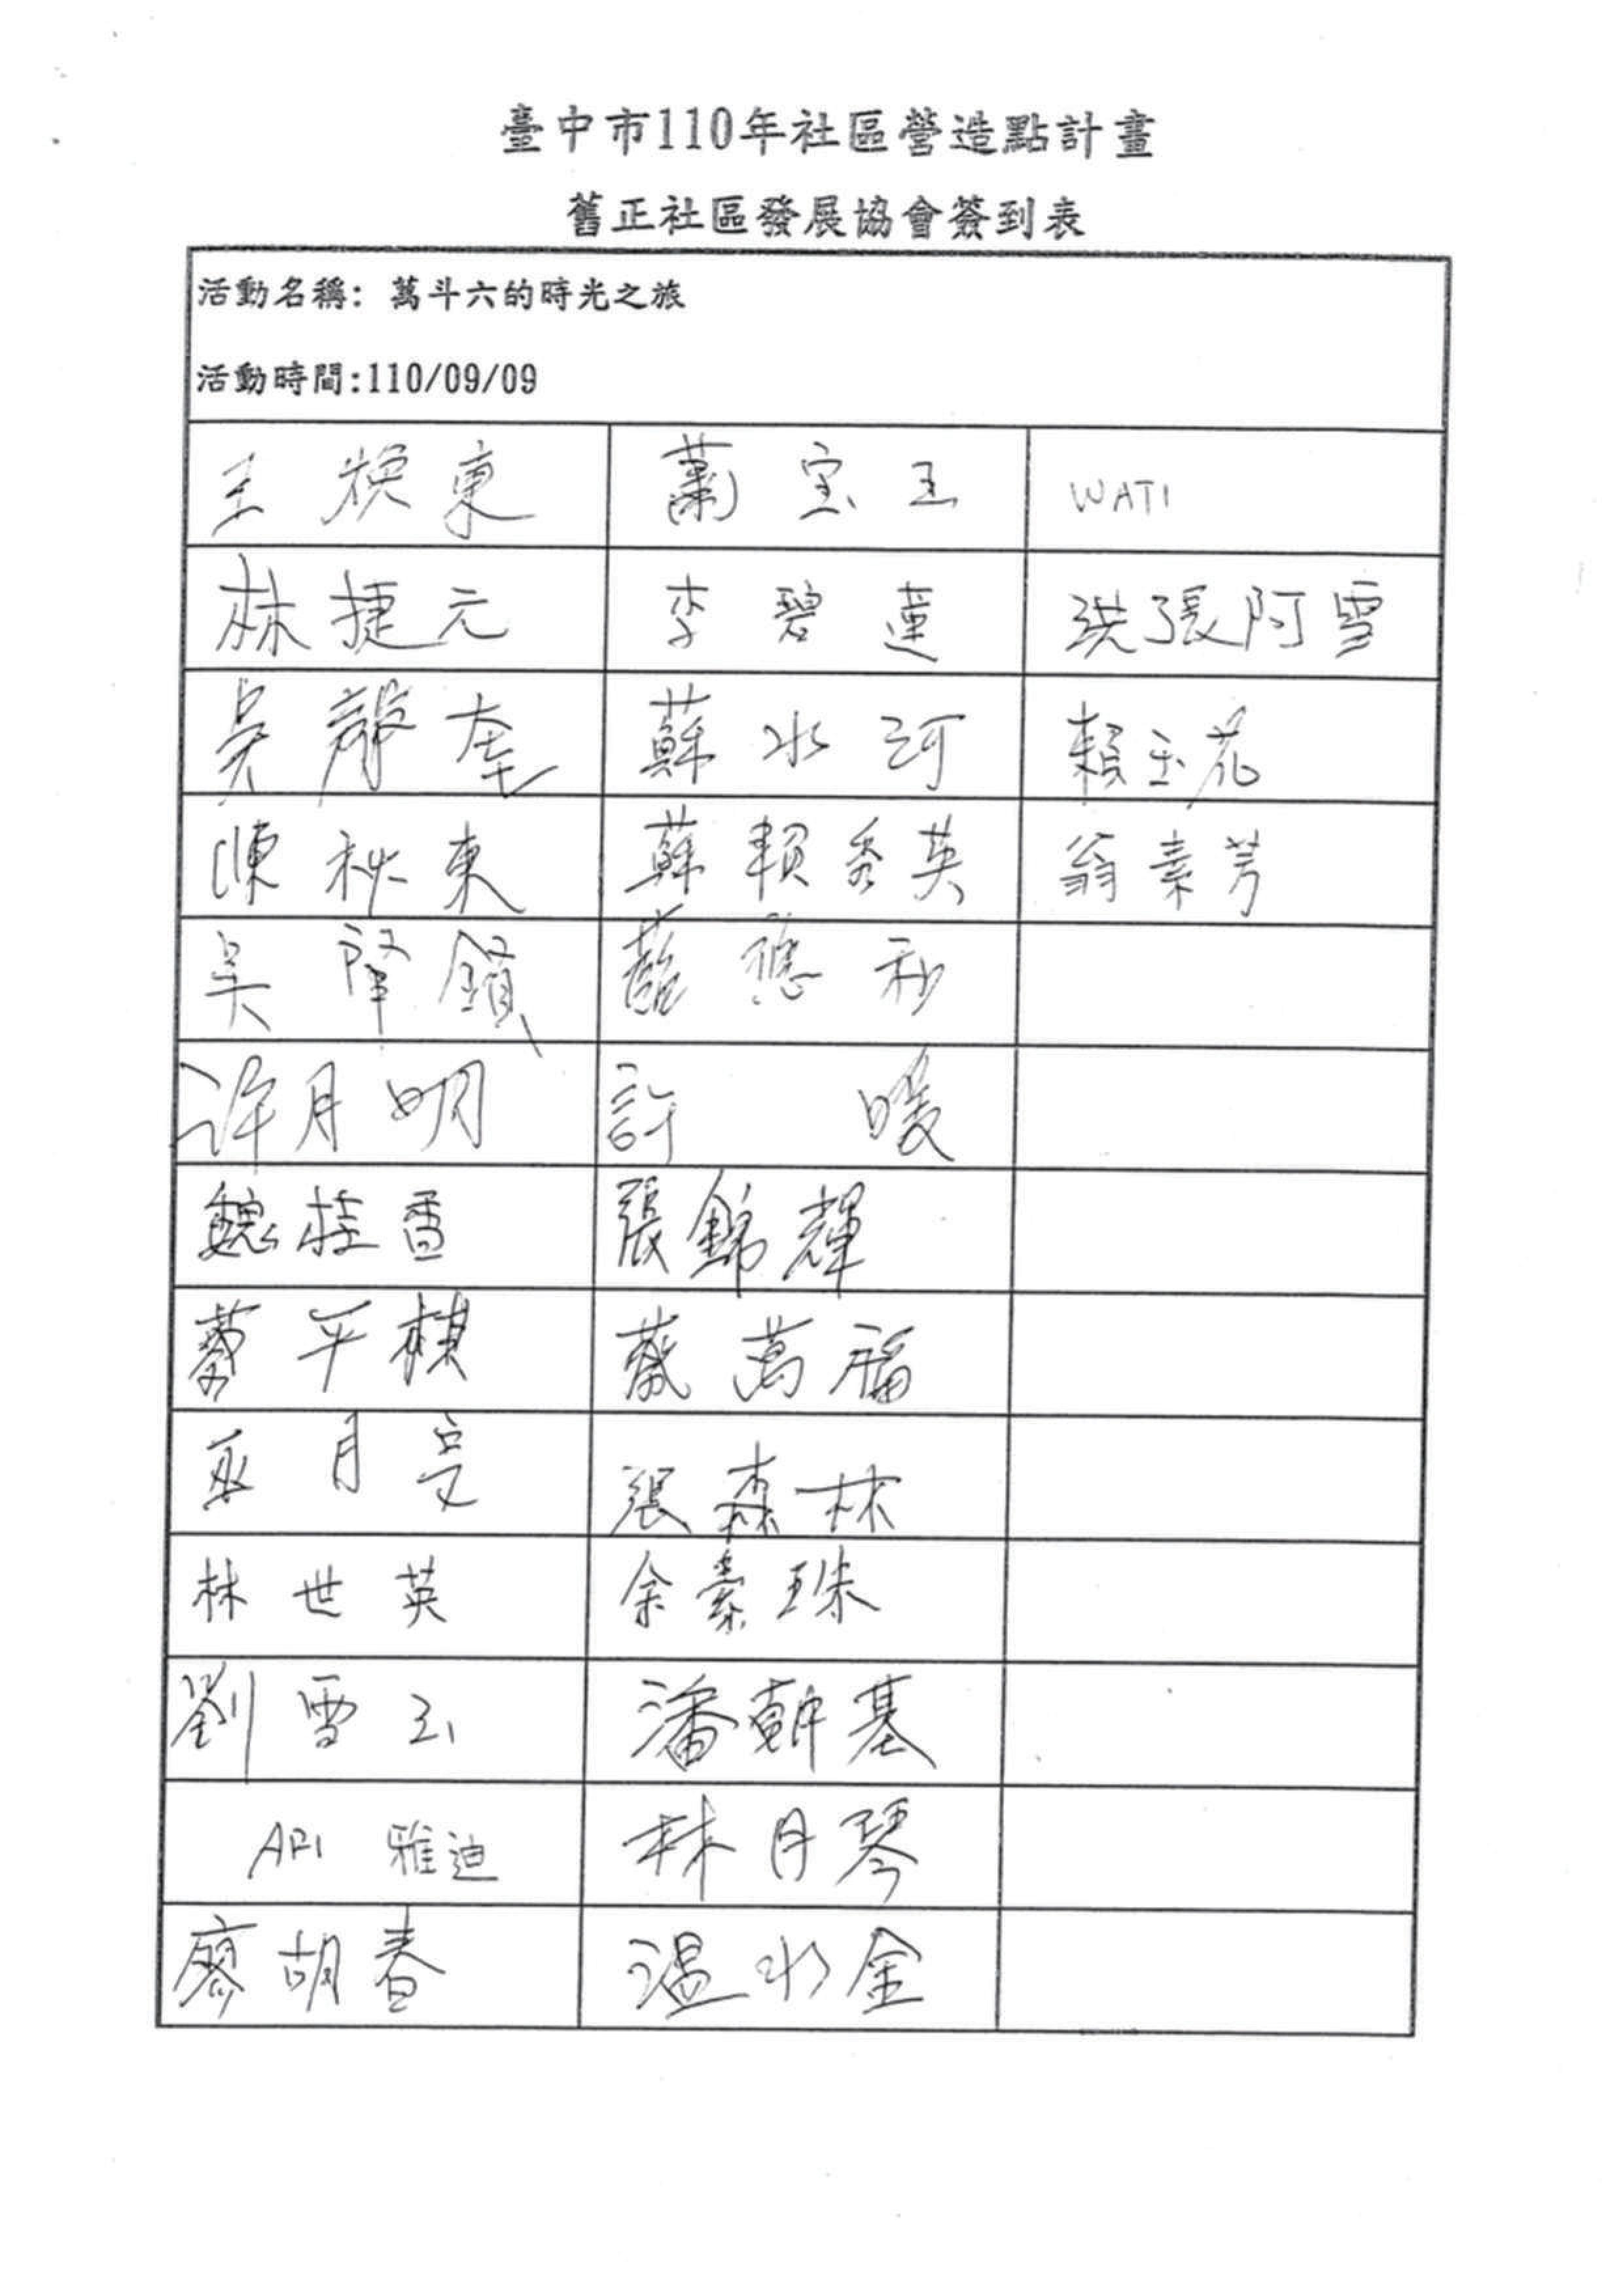 臺中市110年社區營造點計畫
舊正社區發展協會簽到表
活動名稱: 萬斗六的時光之旅
活動時間:110/09/09
王焕東 蕭宝玉 WATI
林捷元 李碧蓮 洪張阿雪
吳 蘇水河 賴玉花
陳秘東 蘇賴秀英 翁素芳
吳降鎮
许月明 許暖
魏桂香 張錦輝
蔡平棋 蔡萬福
巫月 張森林
林世英 余素珠
劉雪玉 潘朝基
API 雅迪 林月琴
廖胡春 温水金